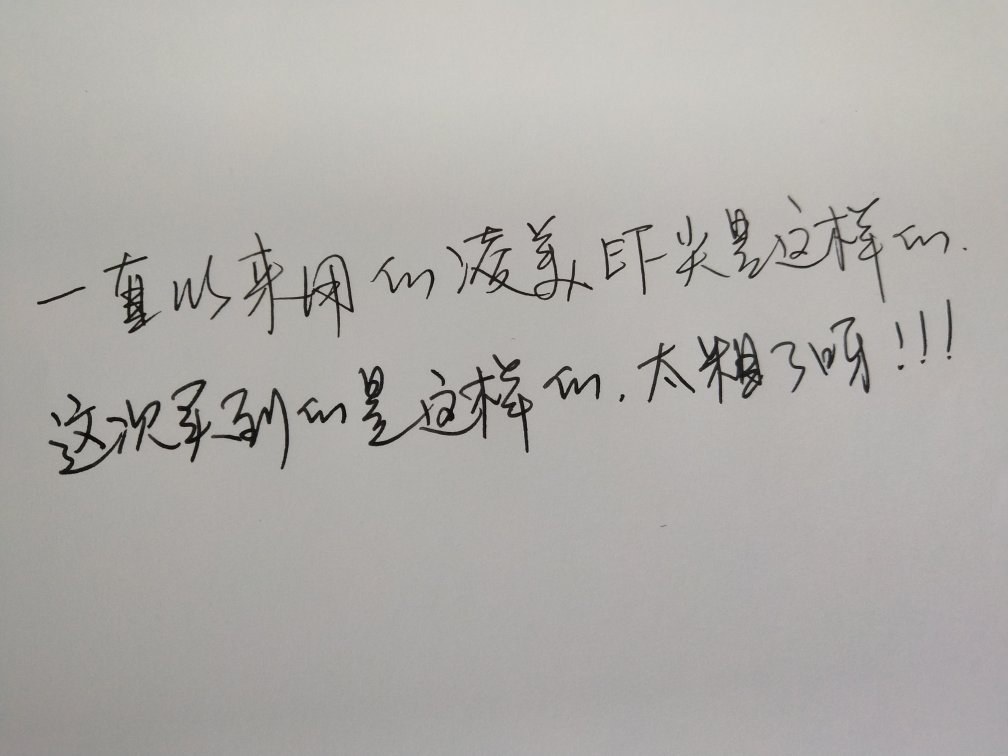 一直以来用的凌美EF尖是这样的.
这次买到的是这样的.太粗了呀!!!